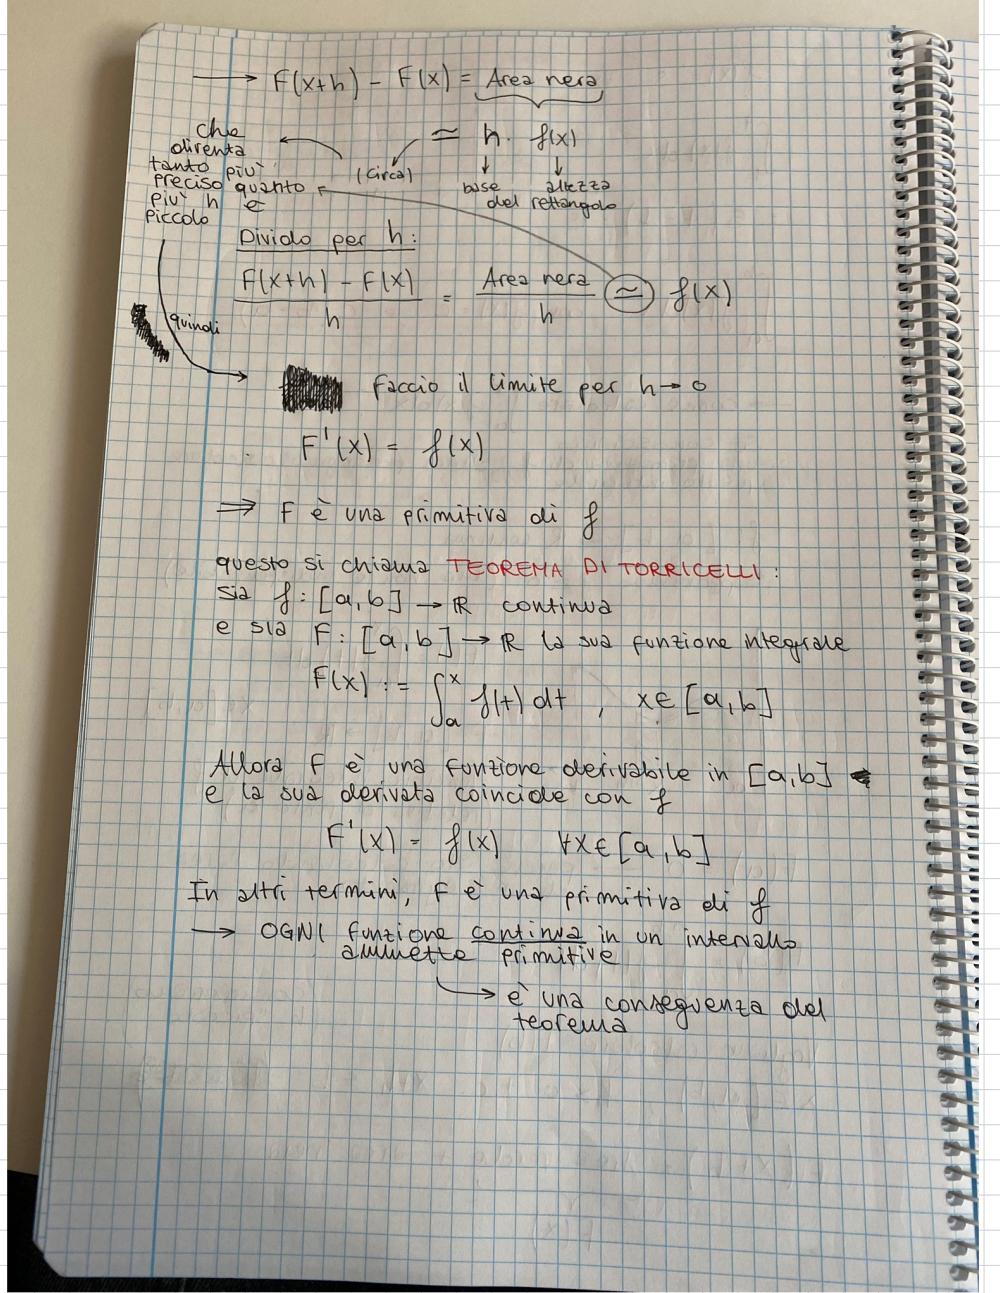 → F(x+h) - F(x) = Area nera
≃ h · f(x)
(circa)
base altezza
del rettangolo
che
diventa
tanto più
preciso quanto
più h è
piccolo
Divido per h:
F(x+h) - F(x) / h = Area nera / h ≃ f(x)
quindi
faccio il limite per h → 0
F'(x) = f(x)
⇒ F è una primitiva di f
questo si chiama TEOREMA DI TORRICELLI:
sia f: [a,b] → ℝ continua
e sia F: [a,b] → ℝ la sua funzione integrale
F(x) := ∫ₐˣ f(t) dt , x ∈ [a,b]
Allora F è una funzione derivabile in [a,b]
e la sua derivata coincide con f
F'(x) = f(x) ∀x ∈ [a,b]
In altri termini, F è una primitiva di f
→ OGNI funzione continua in un intervallo
ammette primitive
→ è una conseguenza del
teorema